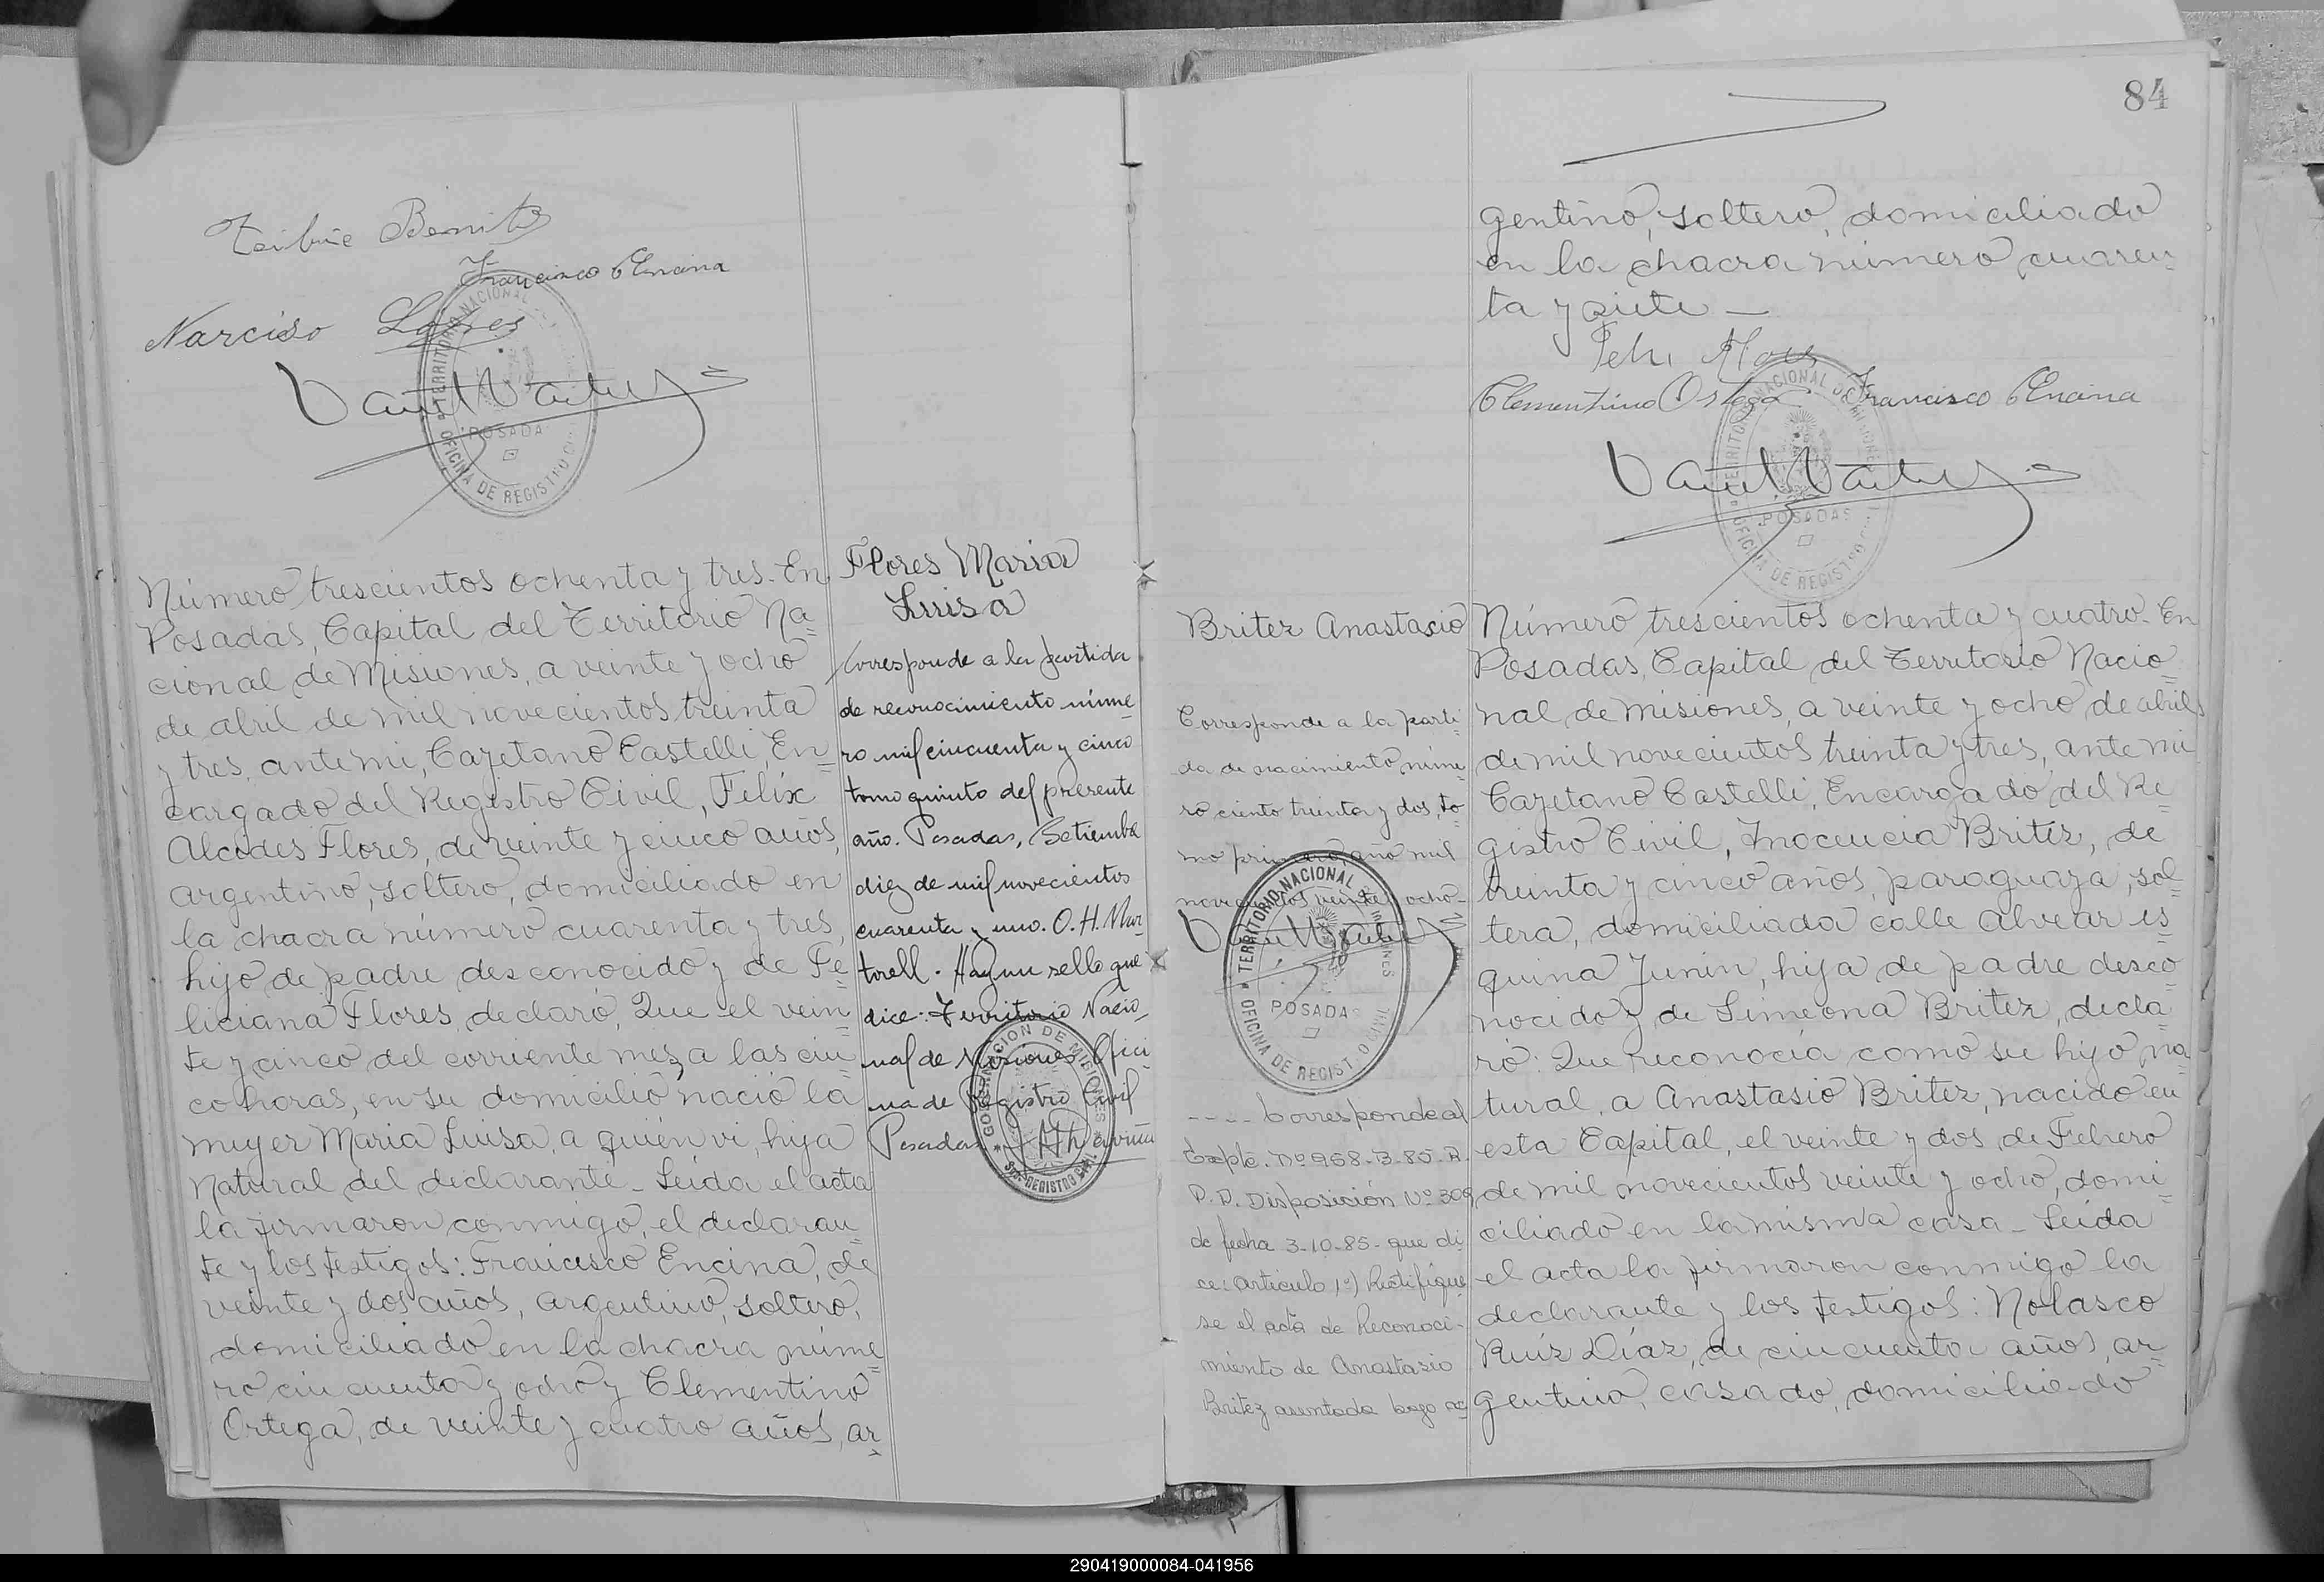 Benito
Francisco Encina
Narciso
TERRITORIO NACIONAL
POSADA
OFICINA DE REGISTRO
Número trescientos ochenta y tres. En
Posadas, Capital del Territorio Na=
cional de Misiones, a veinte y ocho
de abril de mil novecientos treinta
y tres, ante mi, Cayetano Castelli, En=
cargado del Registro Civil, Felix
Alcides Flores, de veinte y cinco años,
argentino, soltero, domiciliado en
la chacra número cuarenta y tres,
hijo de padre desconocido y de Fe=
liciana Flores, declaró, Que el vein=
te y cinco del corriente mes, a las cin=
co horas, en su domicilio nació la
mujer Maria Luisa, a quién vi, hija
natural del declarante. Leida el acta
la firmaron conmigo, el declaran=
te y los testigos: Francisco Encina, de
veinte y dos años, argentino, soltero,
domiciliado en la chacra núme=
ro cincuenta y ocho y Clementino
Ortega, de veinte y cuatro años, ar=
Flores Maria
Luisa
Corresponde a la partida
de reconocimiento núme=
ro mil cincuenta y cinco
tomo quinto del presente
año. Posadas, Setiembre
diez de mil novecientos
cuarenta y uno. O. H. Mar=
torell. Hay un sello que
dice: Territorio Nacio=
nal de Misiones Ofici
na de Registro Civil
Posadas
GOBERNACION DE MISIONES
REGISTRO CIVIL
84
gentino, soltero, domiciliado
en la chacra número cuaren=
ta y siete —
Clementino Ortega Francisco Encina
POSADAS
Britez Anastasio
Corresponde a la parti=
da de nacimiento núme=
ro ciento treinta y dos, to=
mo primero, año mil
novecientos veinte y ocho-
TERRITORIO NACIONAL DE MISIONES
POSADAS
OFICINA DE REGISTRO CIVIL
---- Corresponde al
Expte. Nº 968-B-85-R.
P.P. Disposición Nº 309
de fecha 3-10-85- que di
ce: Articulo 1º) Rectifique
se el acta de Reconoci-
miento de Anastasio
Britez asentada bajo ac
Número trescientos ochenta y cuatro. En
Posadas, Capital del Territorio Nacio=
nal de Misiones, a veinte y ocho de abril
de mil novecientos treinta y tres, ante mi
Cayetano Castelli, Encargado del Re=
gistro Civil, Inocencia Britez, de
treinta y cinco años, paraguaya, sol=
tera, domiciliada calle Alvear es=
quina Junin, hija de padre desco=
nocido y de Simeona Britez, decla=
ró: Que reconocía como su hijo na=
tural, a Anastasio Britez, nacido en
esta Capital, el veinte y dos de Febrero
de mil novecientos veinte y ocho, domi=
ciliado en la misma casa. Leida
el acta la firmaron conmigo la
declarante y los testigos: Nolasco
Ruíz Díaz, de cincuenta años, ar=
gentino, casado, domiciliado
290419000084-041956